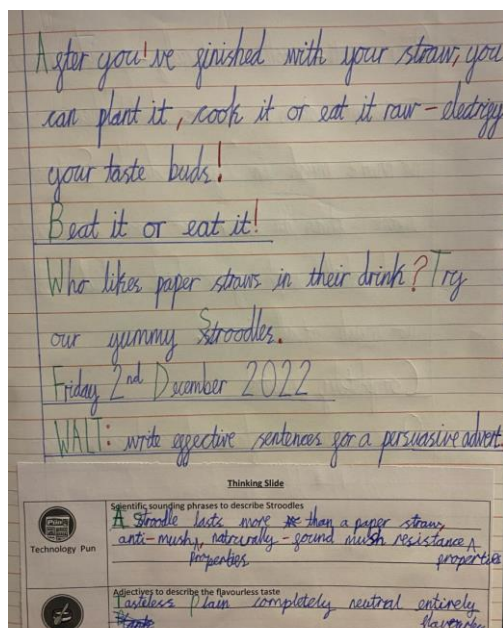 After you've finished with your straw, you
can plant it, cook it or eat it raw - electrify
your taste buds!
Beat it or eat it!
Who likes paper straws in their drink? Try
our yummy Stroodles.
Friday 2nd December 2022
WALT: write effective sentences for a persuasive advert.
Thinking Slide
Scientific sounding phrases to describe Stroodles
A Stroodle lasts more than a paper straw,
anti-mushy, natrurally-found mush resistance
Technology Pun
properties properties
Adjectives to describe the flavourless taste
Tasteless Plain completely neutral entirely